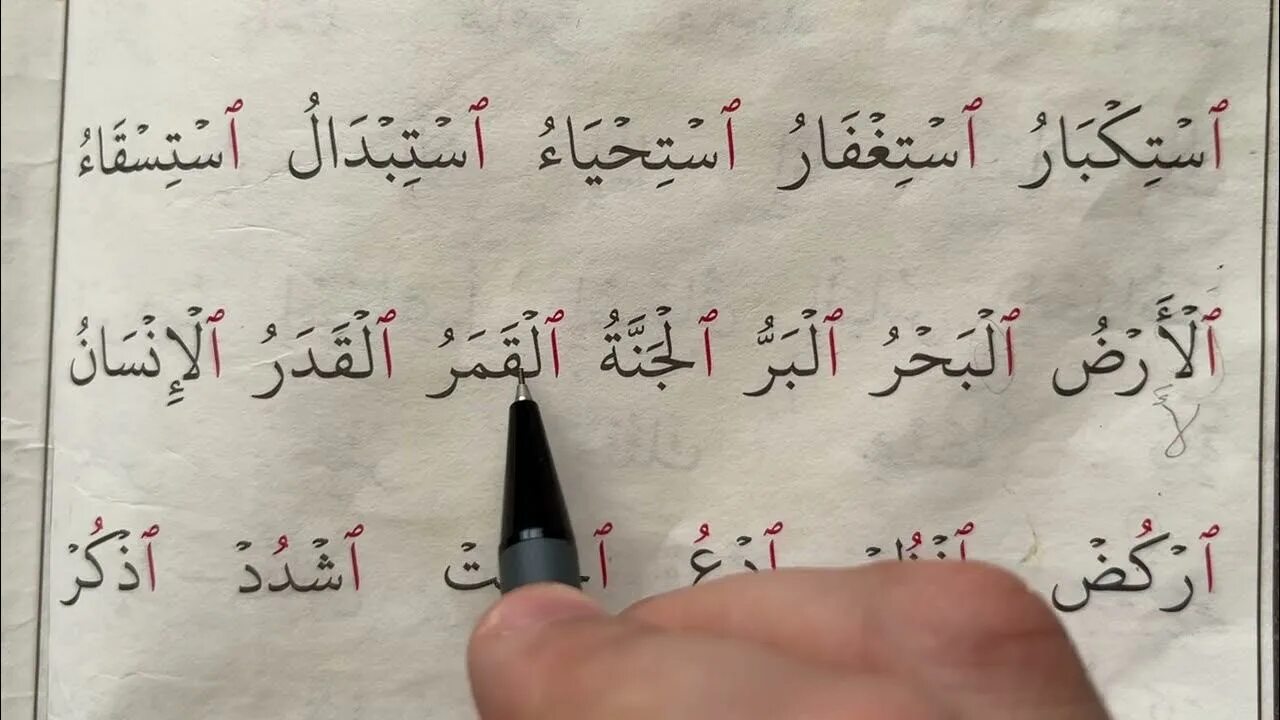 ٱسْتِكْبَارُ ٱسْتِغْفَارُ ٱسْتِحْيَاءُ ٱسْتِبْدَالُ ٱسْتِسْقَاءُ
ٱلْأَرْضُ ٱلْبَحْرُ ٱلْبَرُّ ٱلْجَنَّةُ ٱلْقَمَرُ ٱلْقَدَرُ ٱلْإِنْسَانُ
لَأ
ٱرْكُضْ ٱنْظُرْ ٱدْعُ ٱشْدُدْ ٱذْكُرْ